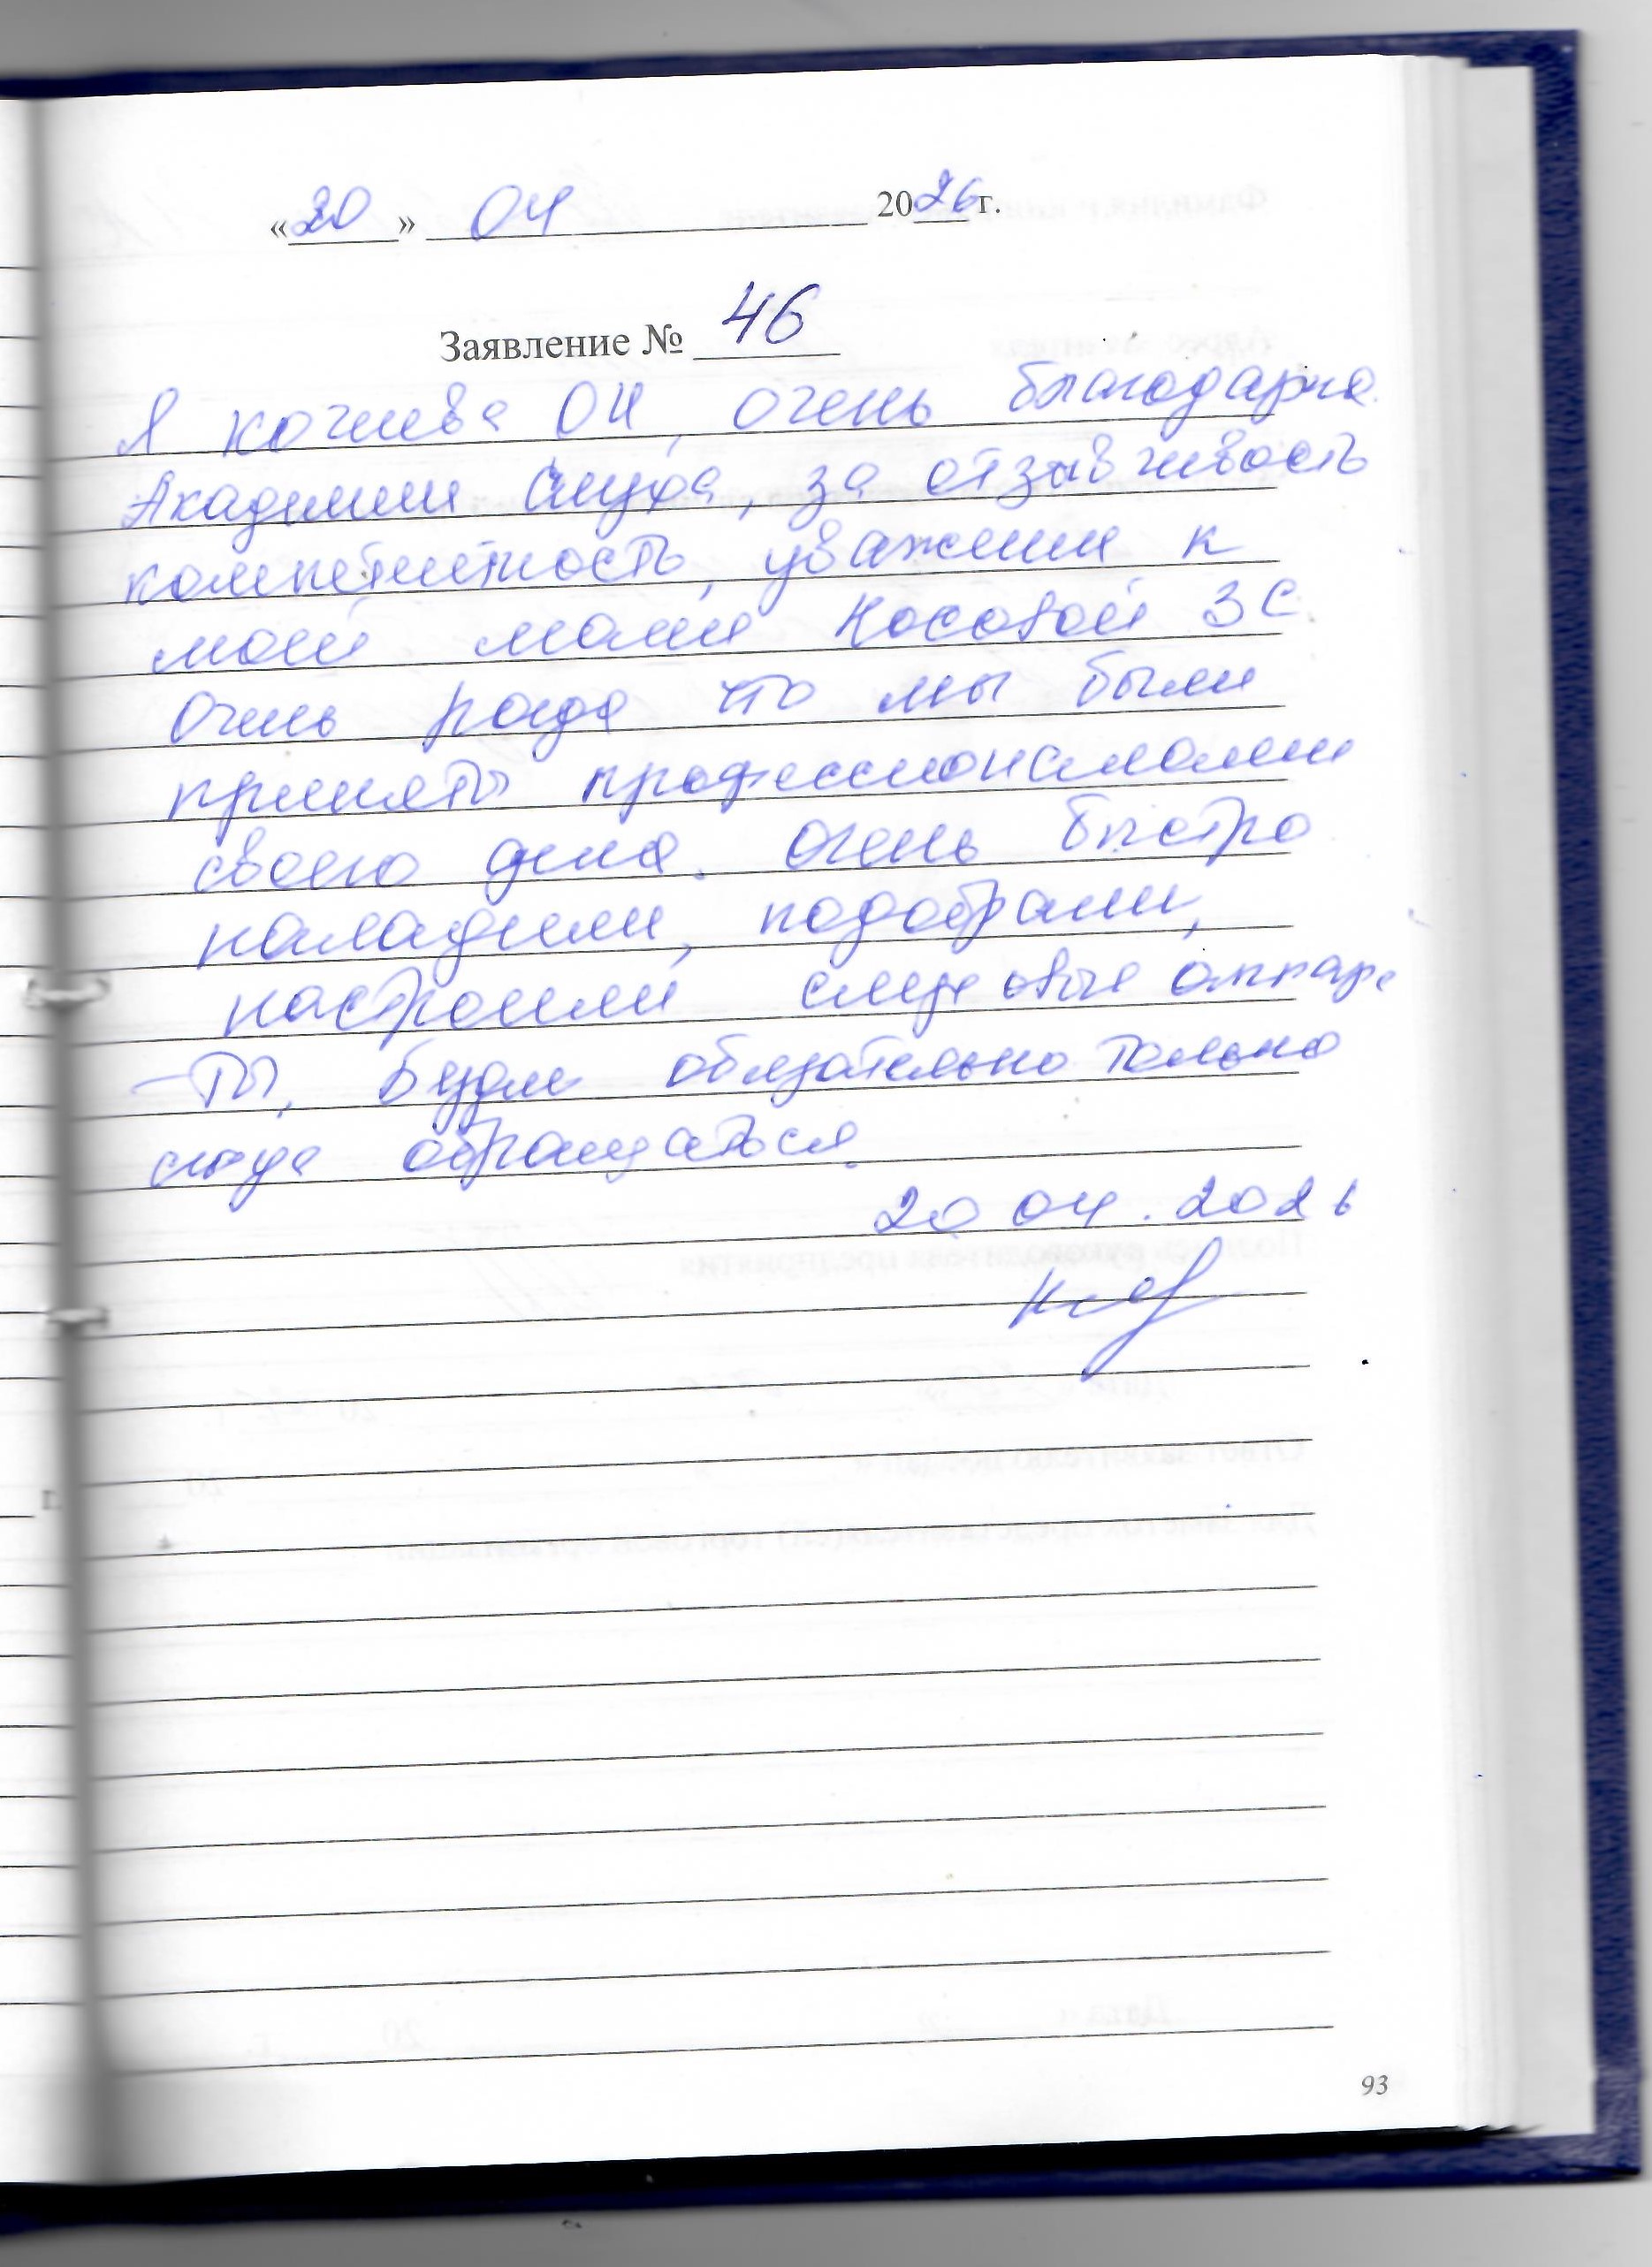 «20» 04 2026 г.
Заявление № 46
Я Кочиева ОИ, очень благодарна
Академии слуха, за отзывчивость
компетентность, уважении к
моей маме Косовой ЗС
Очень рада что мы были
приняты профессионалами
своего дела. Очень быстро
наладили, подобрали,
настроили слуховые аппара
-ты, Будем обязательно только
сюда обращаться.
20 04. 2026
93